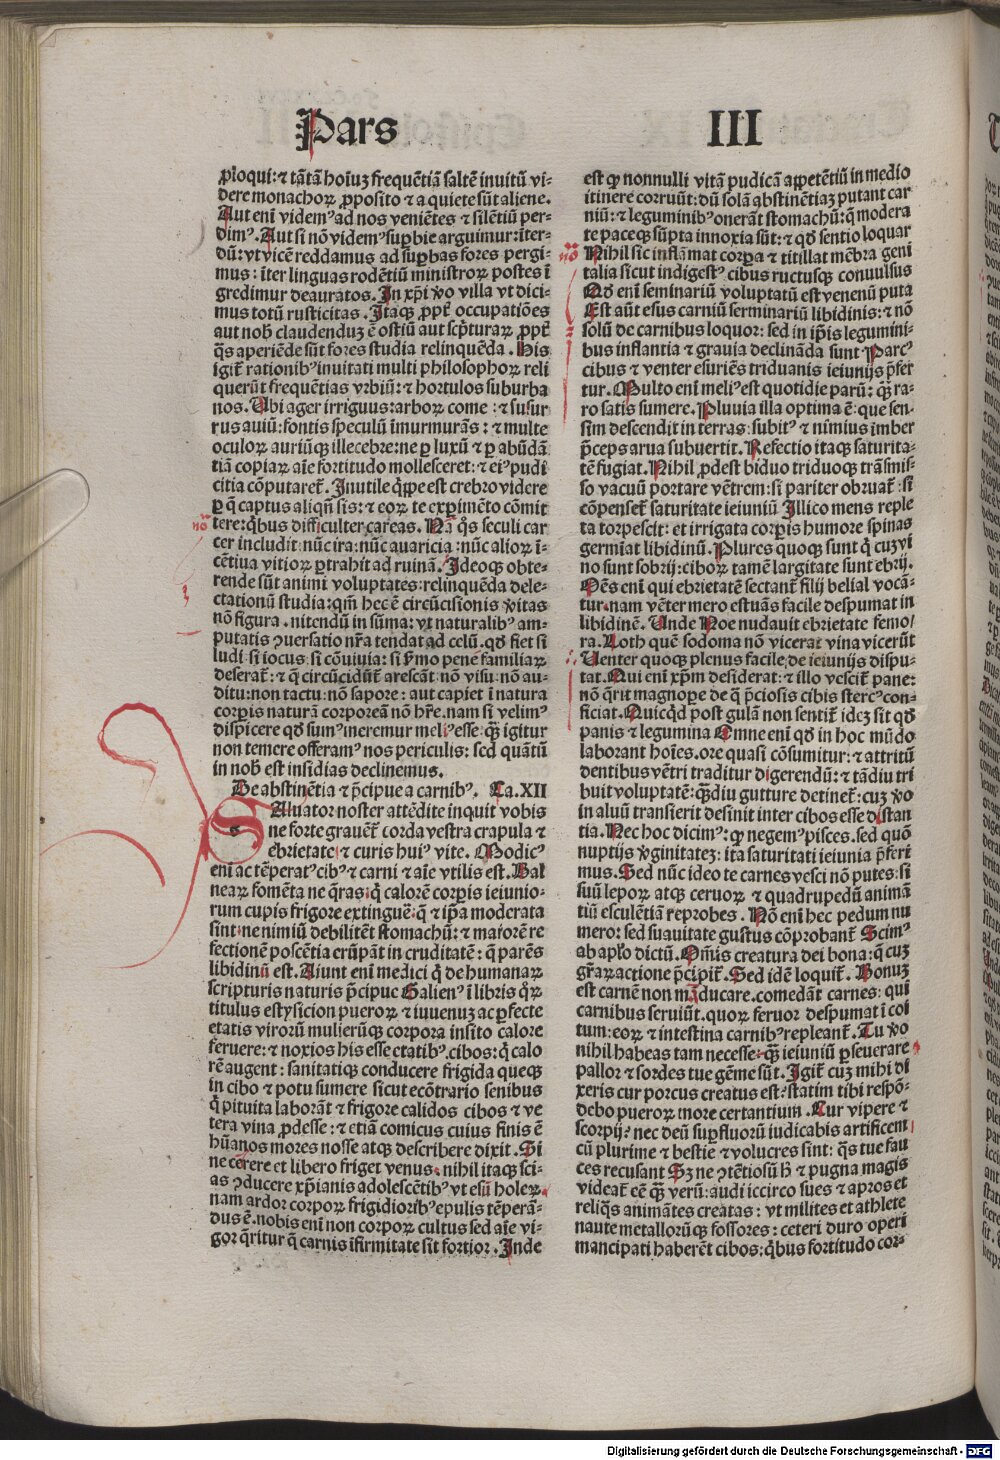 Pars
III
ꝓloqui: ⁊ tātā hoīuꝫ frequētiā saltē inuitū vi-
dere monachoꝝ ꝓposito ⁊ a quiete sūt aliene.
Aut enī videmꝰ ad nos veniētes ⁊ silētiū per-
dimꝰ. Aut si nō videmꝰ suꝑbie arguimur: īter-
dū: vt vicē reddamus ad suꝑbas fores pergi-
mus: īter linguas rodētiū ministroꝝ postes ī
gredimur deauratos. In xp̄i ꝟo villa vt dici-
mus totū rusticitas. Itaqꝫ ꝓpt̄ occupatiōes
aut nob̄ claudenduꝫ ē ostiū aut scp̄turaꝝ ꝓpt̄
q̄s aperiēde sūt fores studia relinquēda. His
igit̄ rationibꝰ inuitati multi philosophoꝝ reli
querūt frequētias vrbiū: ⁊ hortulos suburba
nos. Ubi ager irriguus: arboꝝ come: ⁊ susur
rus auiū: fontis speculū īmurmurās: ⁊ multe
oculoꝝ auriūqꝫ illecebre: ne ꝑ luxū ⁊ ꝑ abūdā
tiā copiaꝝ aīe fortitudo mollesceret: ⁊ eiꝰ pudi
citia cōputaret̄. Inutile q̄ppe est crebro videre
ꝑ q̄ captus aliqn̄ sis: ⁊ eoꝝ te exꝑimēto cōmit
nō
tere: q̄bus difficulter careas. Nā q̄s seculi car
cer includit nūc ira: nūc auaricia: nūc alioꝝ ī-
cētiua vitioꝝ ꝑtrahit ad ruinā. Ideoqꝫ obte-
rende sūt animi voluptates: relinquēda dele-
ctationū studia: qm̄ hec ē circūcisionis ꝟitas
nō figura. nitendū in sūma: vt naturalibꝰ am-
putatis ꝯuersatio nr̄a tendat ad celū. qd̄ fiet si
ludi si iocus si cōuiuia: si ẜmo pene familiaꝝ
deserat̄: ⁊ q̄ circūcidūt̄ arescāt: nō visu: nō au-
ditu: non tactu: nō sapore: aut capiet ī natura
corꝑis naturā corporeā nō hr̄e. nam si velimꝰ
dispicere qd̄ sumꝰ īmeremur meliꝰ esse: qꝫ̄ igitur
non temere offeramꝰ nos periculis: sed quātū
in nob̄ est insidias declinemus.
De abstinētia ⁊ p̄cipue a carnibꝰ. Ca. XII
Saluator noster attēdite inquit vobis
ne forte grauēt̄ corda vestra crapula ⁊
ebrietate ⁊ curis huiꝰ vite. Modicꝰ
enī ac tēperatꝰ cibꝰ ⁊ carni ⁊ aīe vtilis est. Bal
neaꝝ fomēta ne q̄ras: q̄ calorē corꝑis ieiunio-
rum cupis frigore extinguē: q̄ ⁊ ip̄a moderata
sint: ne nimiū debilitēt stomachū: ⁊ maiorē re
fectionē poscētia erūpāt in cruditatē: q̄ parēs
libidinū est. Aiunt enī medici q̄ de humanaꝝ
scripturis naturis p̄cipuc Galienꝰ ī libris q̄ꝝ
titulus estysicion pueroꝝ ⁊ iuuenuꝫ ac ꝑfecte
etatis virorū mulierūqꝫ corpora insito calore
feruere: ⁊ noxios his esse etatibꝰ. cibos: q̄ calo
rē augent: sanitatiqꝫ conducere frigida queqꝫ
in cibo ⁊ potu sumere sicut ecōtrario senibus
q̄ pituita laborāt ⁊ frigore calidos cibos ⁊ ve
tera vina ꝓdesse: ⁊ etiā comicus cuius finis ē
hūanos mores nosse atqꝫ describere dixit. Si
ne cerere et libero friget venus. nihil itaqꝫ sci-
as ꝯducere xp̄ianis adolescētibꝰ vt esū holeꝝ.
nam ardor corpoꝝ frigidioribꝰ epulis tēperā-
dus ē. nobis enī non corpoꝝ cultus sed aīe vi-
gor q̄ritur q̄ carnis īfirmitate sit fortior. Inde
est qꝙ nonnulli vitā pudicā appetētiū in medio
itinere corruūt: dū solā abstinētiaꝫ putant car
niū: ⁊ leguminibꝰ onerāt stomachū: q̄ modera
te paceqꝫ sūpta innoxia sūt: ⁊ qd̄ sentio loquar
nō
Nihil sic inflāmat corꝑa ⁊ titillat mēbra geni
talia sicut indigestꝰ cibus ructusqꝫ conuulsus
Qd̄ enī seminariū voluptatū est venenū puta
Est aūt esus carniū serminariū libidinis: ⁊ nō
solū de carnibus loquor: sed in ip̄is legumini-
bus inflantia ⁊ grauia declināda sunt Parcꝰ
cibus ⁊ venter esuriēs triduanis ieiunijs p̄fer
tur. Multo enī meliꝰ est quotidie parū: qꝫ̄ ra-
ro satis sumere. Pluuia illa optima ē: que sen-
sim descendit in terras: subitꝰ ⁊ nimius imber
p̄ceps arua subuertit. Refectio itaqꝫ saturita-
tē fugiat. Nihil ꝓdest biduo triduoqꝫ trāsmis-
so vacuū portare vētrem: si pariter obruat̄: si
cōpenset̄ saturitate ieiuniū Illico mens reple
ta torpescit: et irrigata corꝑis humore spinas
germīat libidinū. Plures quoqꝫ sunt q̄ cuꝫ vi
no sunt sobrij: ciboꝝ tamē largitate sunt ebrij.
Oēs enī qui ebrietatē sectant̄ filij belial vocā-
tur. nam vēter mero estuās facile despumat in
libidinē. Unde Noe nudauit ebrietate femo/
ra. Loth quē sodoma nō vicerat vina vicerūt
Uenter quoqꝫ plenus facile de ieiunijs dispu-
tat. Qui enī xp̄m desiderat: ⁊ illo vescit̄ pane:
nō q̄rit magnope de q̄ p̄ciosis cibis stercꝰ con-
ficiat. Quicqd̄ post gulā non sentit̄ ideꝫ sit qd̄
panis ⁊ legumina Omne enī qd̄ in hoc mūdo
laborant hoīes. ore quasi cōsumitur: ⁊ attritū
dentibus vētri traditur digerendū: ⁊ tādiu tri
buit voluptatē: qꝫ̄diu gutture detinet̄: cuꝫ ꝟo
in aluū transierit desinit inter cibos esse distan
tia. Nec hoc dicimꝰ: qꝙ negemꝰ pisces. sed quō
nuptijs ꝟginitateꝫ: ita saturitati ieiunia p̄feri
mus. Sed nūc ideo te carnes vesci nō putes: si
suū lepoꝝ atqꝫ ceruoꝝ ⁊ quadrupedū animā
tiū esculētiā reprobes. Nō enī hec pedum nu
mero: sed suauitate gustus cōprobant̄ Scimꝰ
ab aplo dictū. Om̄is creatura dei bona: q̄ cuꝫ
gr̄aꝝ actione p̄cipit̄. Sed idē loquit̄. Bonuꝫ
est carnē non māducare. comedāt carnes: qui
carnibus seruiūt. quoꝝ feruor despumat ī coi
tum: eoꝝ ⁊ intestina carnibꝰ repleant̄. Tu ꝟo
nihil habeas tam necesse: qꝫ̄ ieiuniū ꝑseuerare
pallor ⁊ sordes tue gēme sūt. Igit̄ cuꝫ mihi di
xeris cur porcus creatus est: statim tibi respō-
debo pueroꝝ more certantium. Cur vipere ⁊
scorpij? nec deū suꝑfluorū iudicabis artificem
cū plurime ⁊ bestie ⁊ volucres sint: q̄s tue fau
ces recusant Sꝫ ne ꝯtētiosū h̄ ⁊ pugna magis
videat̄ eē qꝫ̄ verū: audi iccirco sues ⁊ apros et
reliq̄s animātes creatas: vt milites et athlete
naute metallorūqꝫ fossores: ceteri duro operi
mancipati haberēt cibos: q̄bus fortitudo cor-
Digitalisierung gefördert durch die Deutsche Forschungsgemeinschaft - DFG